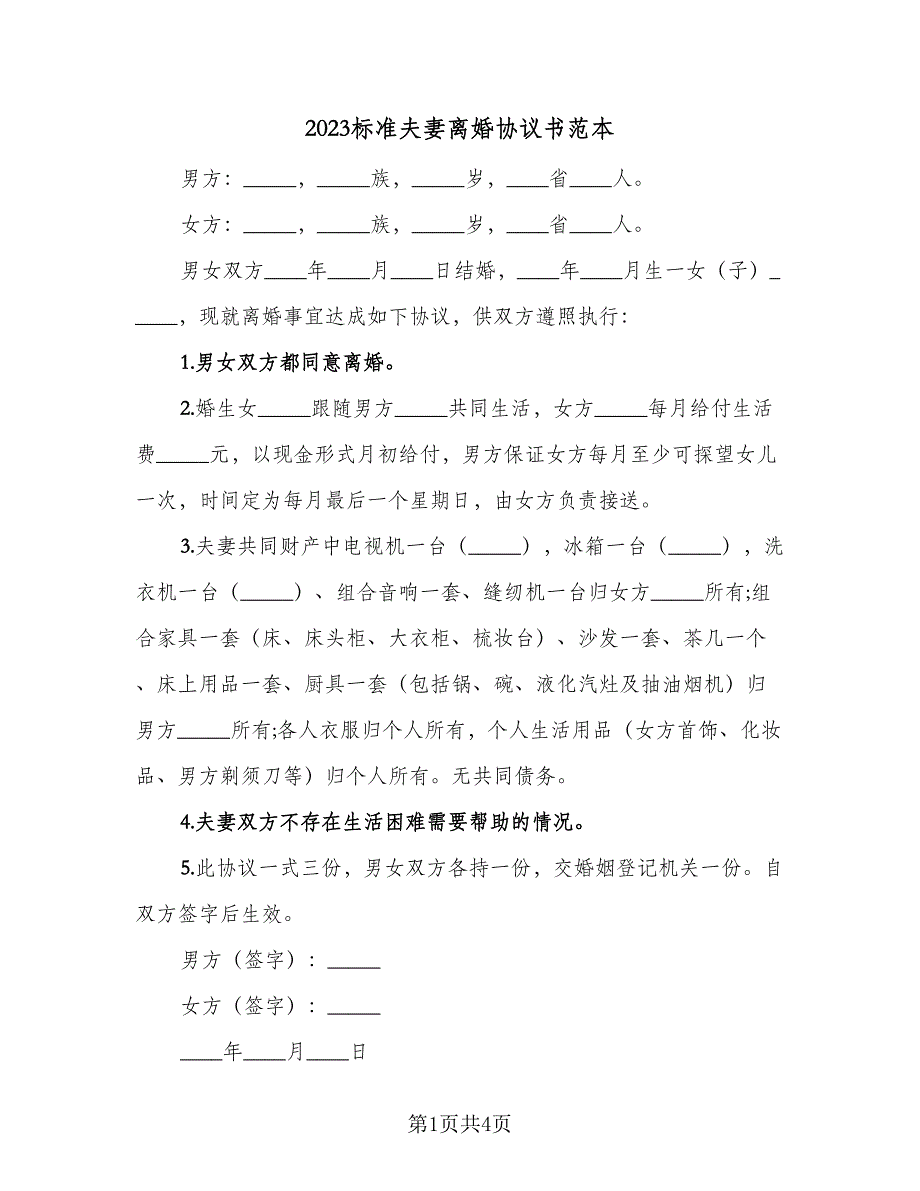 2023标准夫妻离婚协议书范本
男方：_____，_____族，_____岁，____省____人。
女方：_____，_____族，_____岁，____省____人。
男女双方____年____月____日结婚，____年____月生一女（子）_
____，现就离婚事宜达成如下协议，供双方遵照执行：
1.男女双方都同意离婚。
2.婚生女_____跟随男方_____共同生活，女方_____每月给付生活
费_____元，以现金形式月初给付，男方保证女方每月至少可探望女儿
一次，时间定为每月最后一个星期日，由女方负责接送。
3.夫妻共同财产中电视机一台（_____），冰箱一台（_____），洗
衣机一台（_____）、组合音响一套、缝纫机一台归女方_____所有;组
合家具一套（床、床头柜、大衣柜、梳妆台）、沙发一套、茶几一个
、床上用品一套、厨具一套（包括锅、碗、液化汽灶及抽油烟机）归
男方_____所有;各人衣服归个人所有，个人生活用品（女方首饰、化妆
品、男方剃须刀等）归个人所有。无共同债务。
4.夫妻双方不存在生活困难需要帮助的情况。
5.此协议一式三份，男女双方各持一份，交婚姻登记机关一份。自
双方签字后生效。
男方（签字）：_____
女方（签字）：_____
____年____月____日
第1页共4页